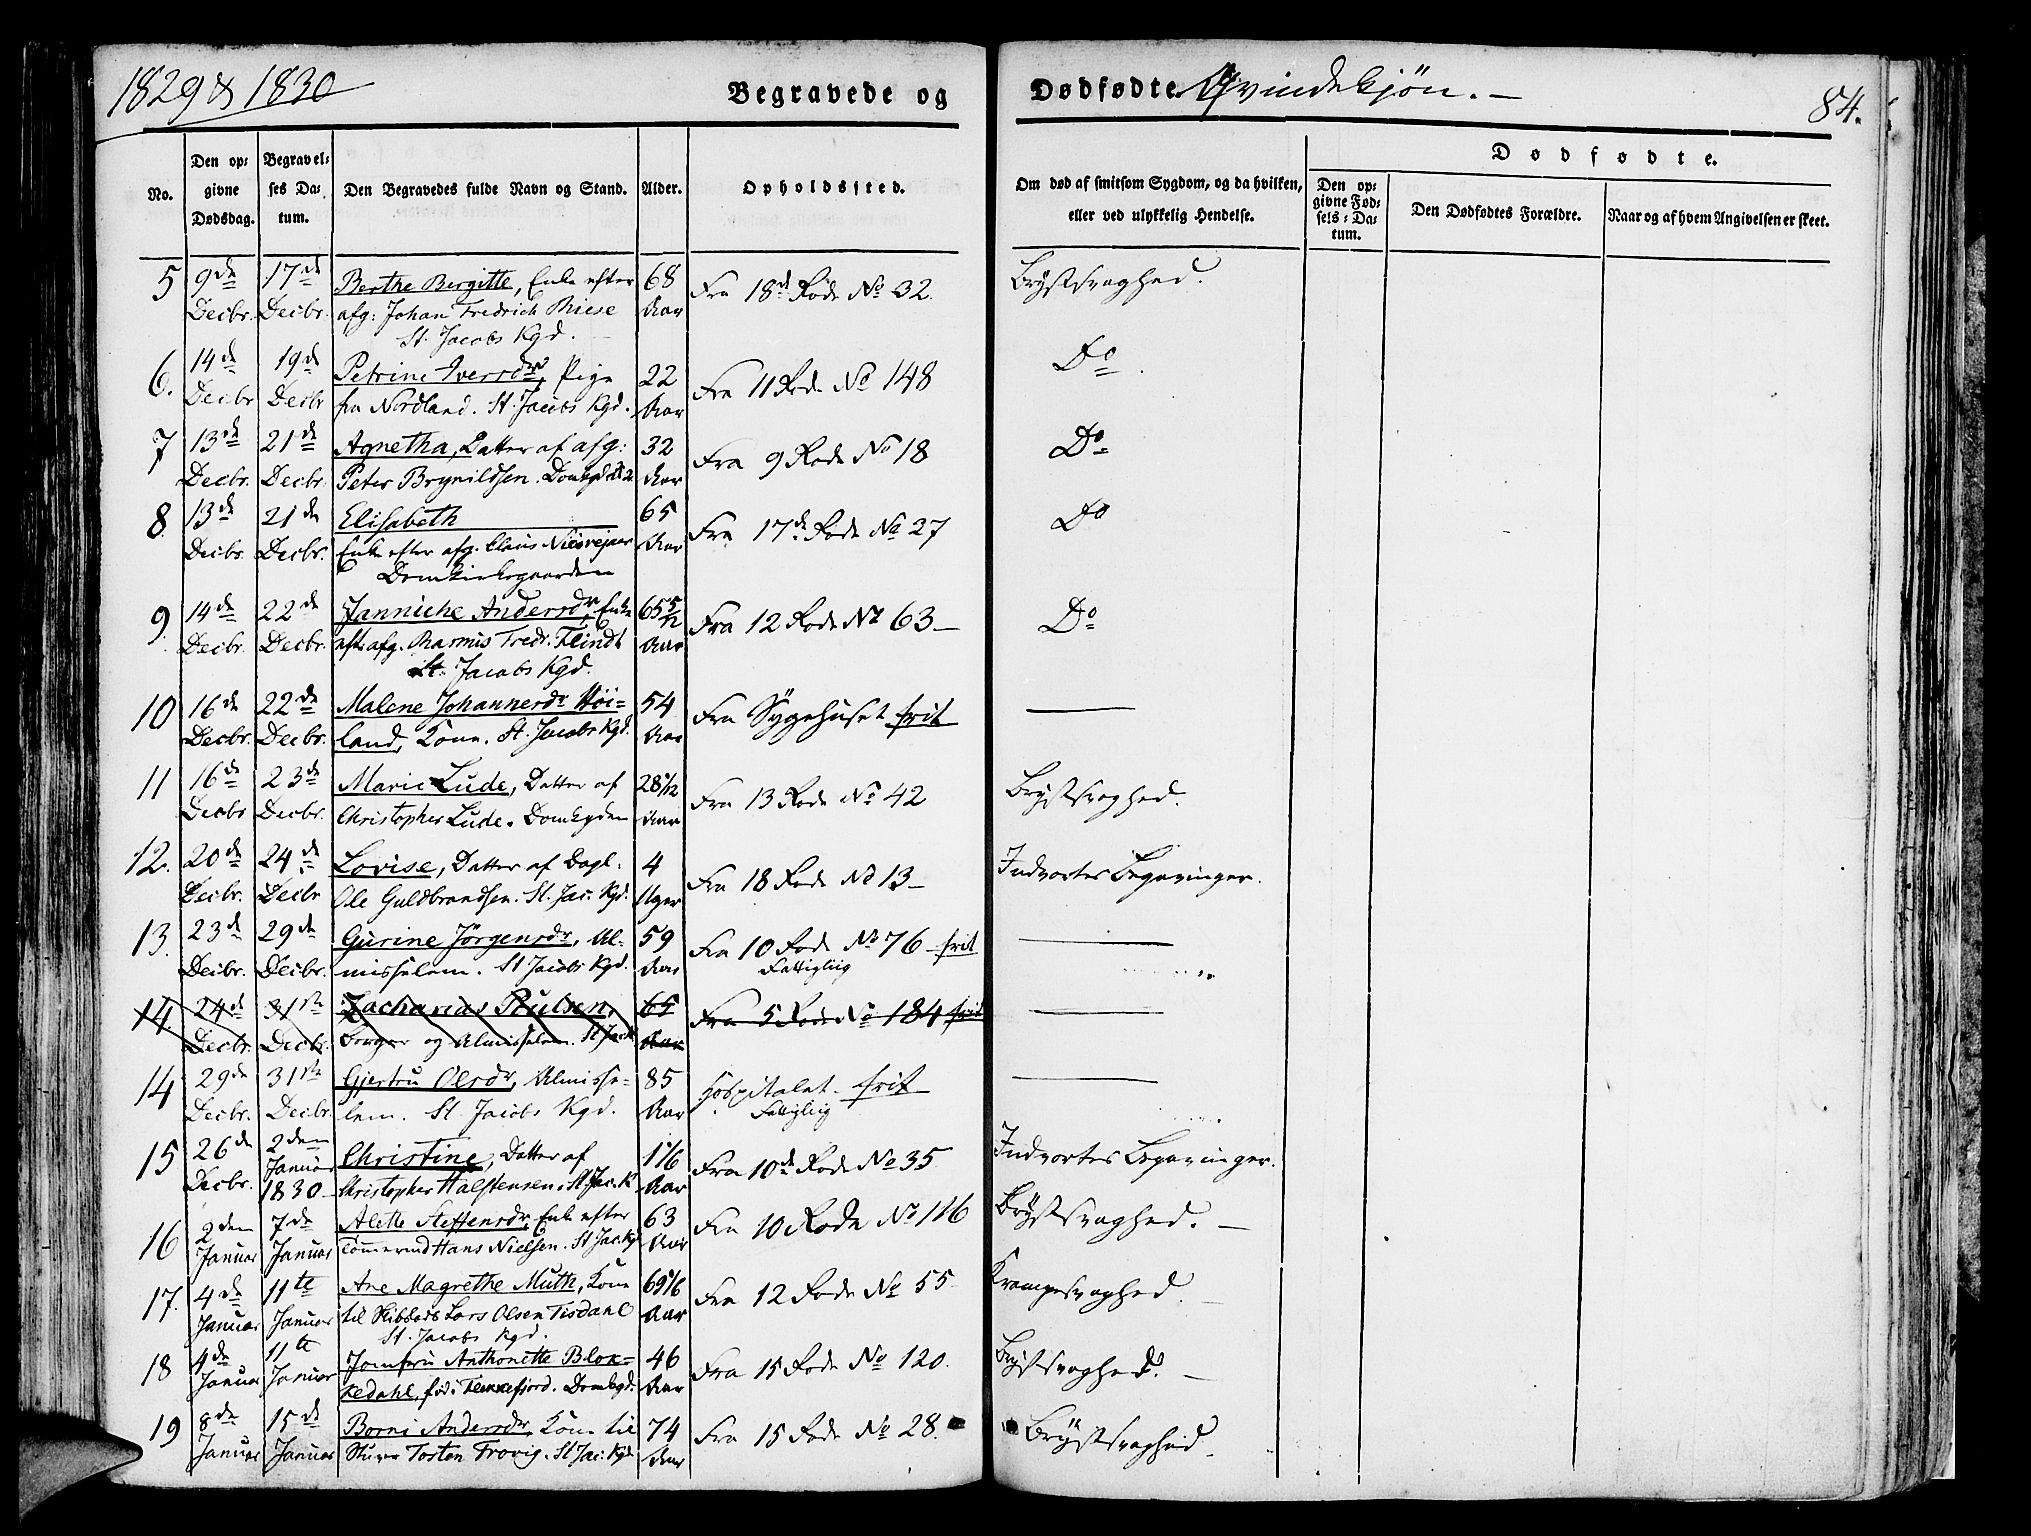 1829 & 1830
Begravede og
Dødfødte Qvindekjøn. —
84.
No.
Den op-
givne
Dødsdag.
Begravel-
ses Da-
tum.
Den Begravedes fulde Navn og Stand.
Alder.
Opholdssted.
Om død af smitsom Sygdom, og da hvilken,
eller ved ulykkelig Hendelse.
Dødfødte.
Den op-
givne Fød-
sels-Da-
tum.
Den Dødfødtes Forældre.
Naar og af hvem Angivelsen er skeet.
5 9de 17de Berthe Bergitte, Enke efter 68 Fra 18de Rode No 32. Brystsvaghed.
Decbr. Decbr. afg: Johan Fredrich Riese Aar
St. Jacobs Kgd.
6. 14de 19de Petrine Iversdr, Pige 22 Fra 11 Rode No 148 Do
Decbr Decbr fra Nordland. St. Jacobs Kgd. Aar
7 13de 21de Agnetha, Datter af afg: 32 Fra 9 Rode No 18 Do
Decbr. Decbr. Peter Brynildsen. Aar
8. 13de 21de Elisabeth 65 Fra 17de Rode No 27 Do
Decbr. Decbr. Enke efter afg. Claus Aar
Domkirkegaarden
9. 14de 22de Janniche Andersdr, Enke 65 5/12 Fra 12 Rode No 63 — Do
Decbr. Decbr. efter afg. Rasmus Fredr. Flindt Aar
St. Jacobs Kgd.
10 16de 22de Malene Johannesdr Høi- 54 Fra Sygehuset frit —
Decbr. Decbr. land, Kone. St. Jacobs Kgd. Aar
11 16de 23de Marie Lude, Datter af 28 1/12 Fra 13 Rode No 42 Brystsvaghed.
Decbr Decbr. Christopher Lude. Domkgden Aar
12. 20de 24de Lovise, Datter af Dagl. 4 Fra 18 Rode No 13 — Indvortes Begavninger.
Decbr. Decbr Ole Guldbrandsen. St. Jac. Kgd. Uger
13. 23de 29de Gurine Jørgensdr, Al- 59 Fra 10 Rode No 76 — frit —
Decbr. Decbr. misselem. St Jacobs Kgd. Aar Fattiglig
14. 24de 31te Zacharias Poulsen, 65 Fra 5 Rode No 184 frit —
Decbr. Decbr. Borger og Almisselem. St Jacob Aar
14 29de 31te Gjertru Olsdr, Almisse- 85 Hospitalet. frit —
Decbr. Decbr. lem. St. Jacobs Kgd. Aar Fattiglig
15 26de 2den Christine, Datter af 1 1/6 Fra 10de Rode No 35 Indvortes Begavninger.
Decbr. Januar
1830 Christopher Halstensen. St. Jac. K. Aar
16 2den 7de Alette Steffensdr, Enke efter 63 Fra 10 Rode No 116 Brystsvaghed. —
Januar Januar Tømmermd Hans Nielsen. St Jac. Kgd Aar
17. 4de 11te Ane Magrethe Muth, Kone 69 1/6 Fra 12 Rode No 55 Krampesvaghed. —
Januar Januar til Skibbds Lars Olsen Tisdahl Aar
St. Jacobs Kgd.
18 4de 11te Jomfru Anthonette Blox- 46 Fra 15 Rode No 120. Brystsvaghed. —
Januar Januar kedahl, fød i Flekkefjord. Domkgd. Aar
19 8de 15de Borni Andersdr, Kone til 74 Fra 15 Rode No 28. Brystsvaghed —
Januar Januar Torsten Trovig. St Jac. Kgd. Aar